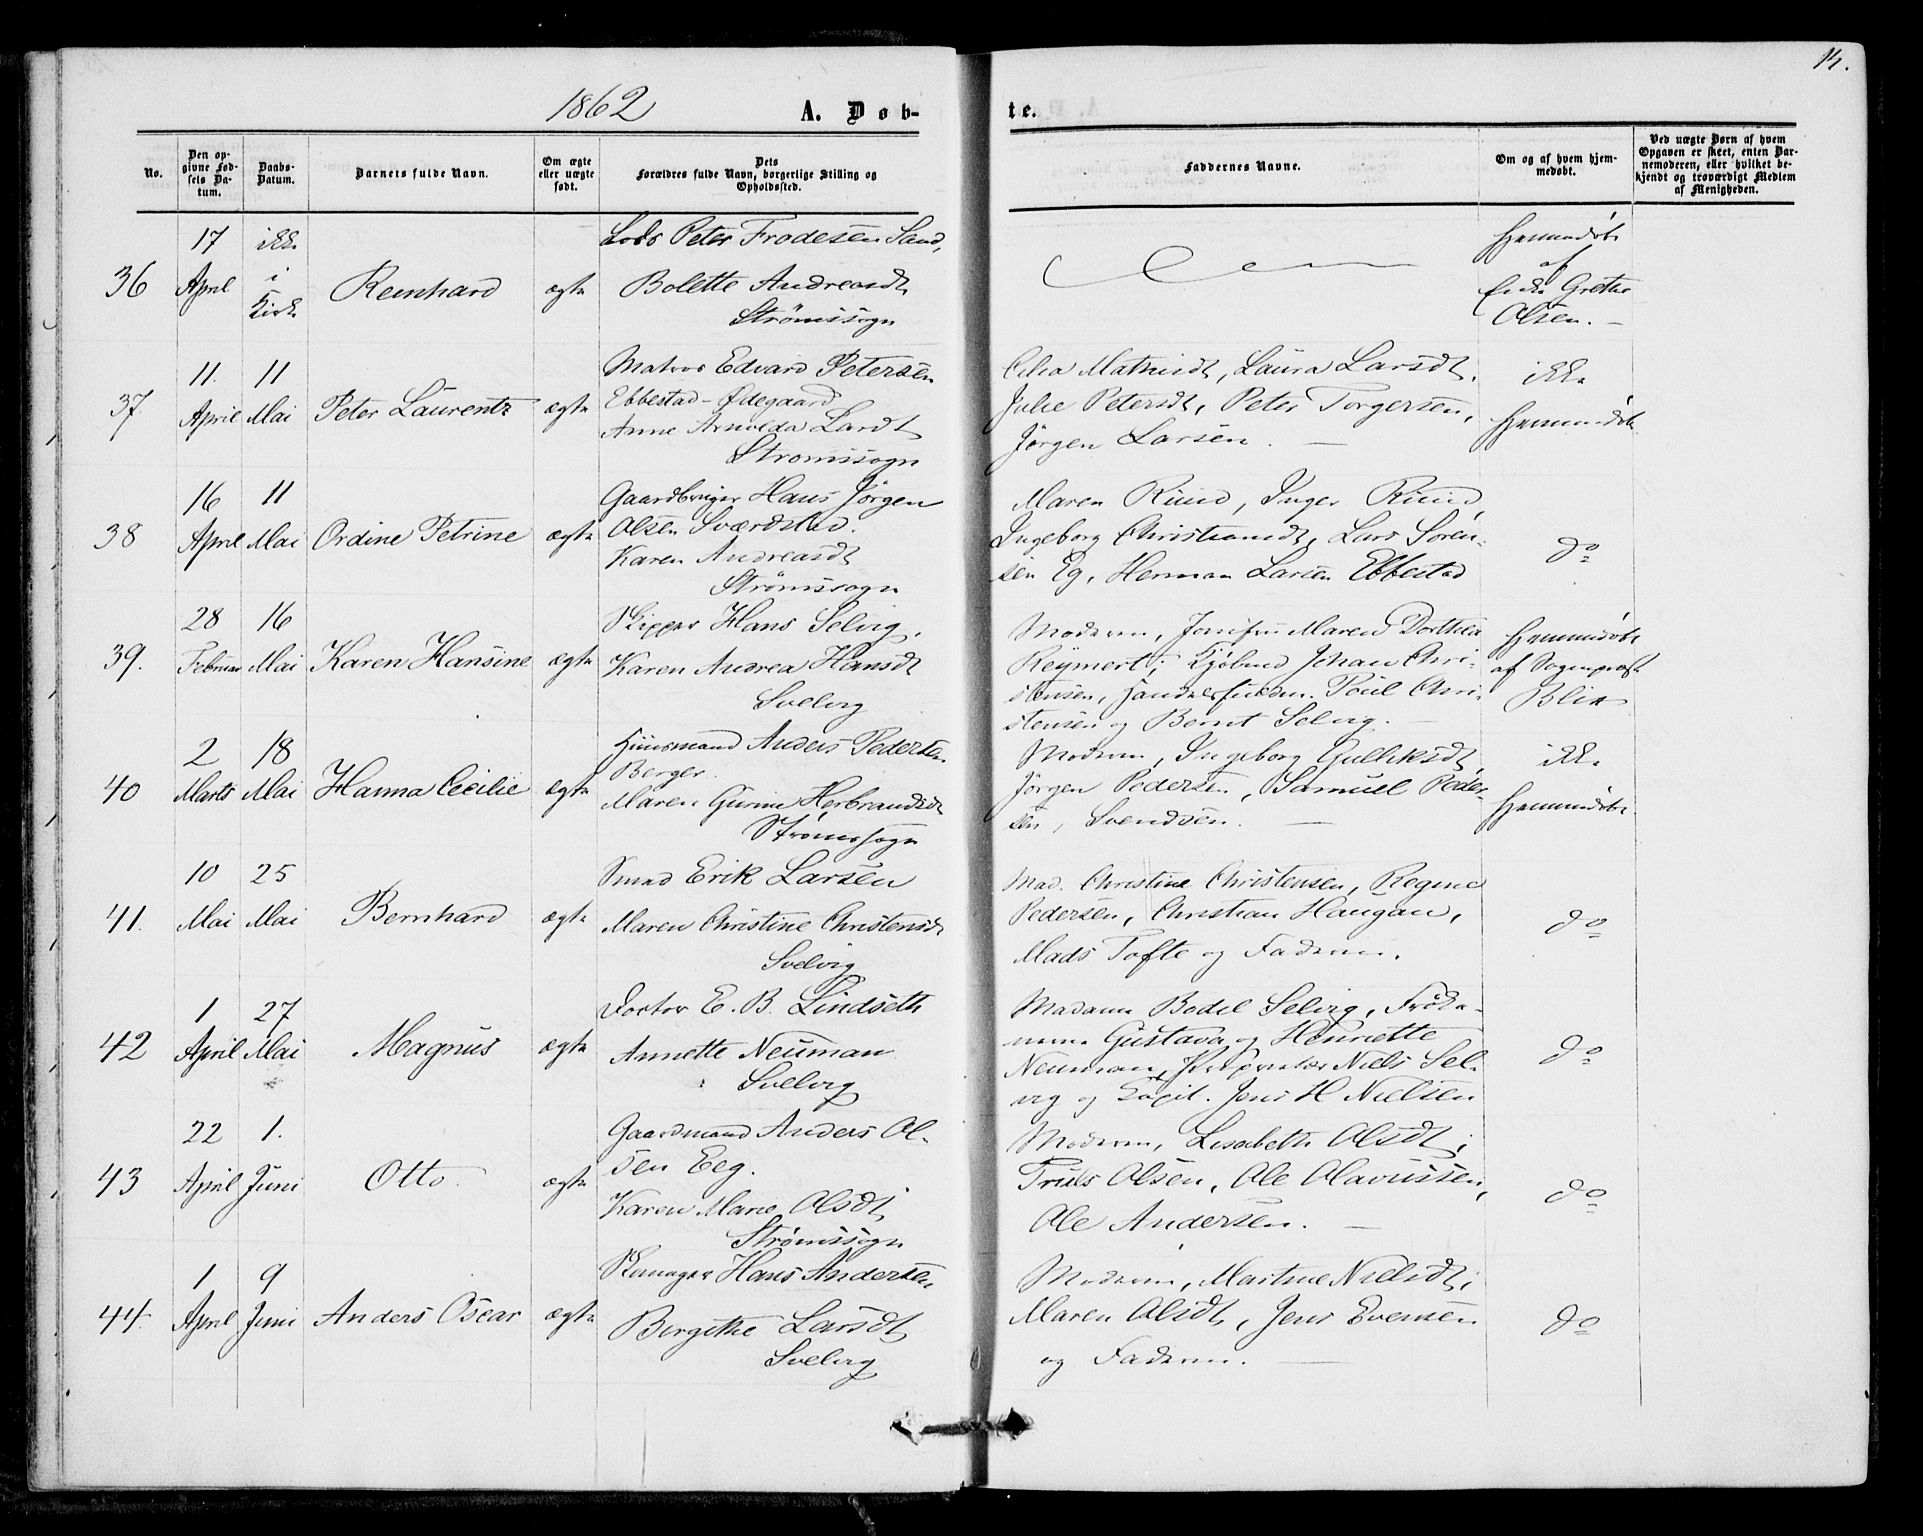 1862
A. Døb-
te.
14.
No.
Den op-
givne Fød-
sels Da-
tum.
Daabs-
Datum.
Barnets fulde Navn.
Om ægte
eller uægte
født.
Dets
Forældres fulde Navn, borgerlige Stilling og
Opholdssted.
Faddernes Navne.
Om og af hvem hjem-
medøbt.
Ved uægte Børn af hvem
Opgaven er skeet, enten Bar-
nemoderen, eller hvilket be-
kjendt og troværdigt Medlem
af Menigheden.
36
17
April
ikke
i
Kirke
Reinhard
ægte
Lods Peter Frodesen Sand,
Bolette Andreasdt
Strømssogn
Hjemmedøbt
af
Grethe
Olsen.
37
11.
April
11
Mai
Peter Laurentz
ægte
Matros Edvard Petersen
Ebbestad-Ødegaard
Anne Arnolda Larsdt
Strømssogn
Mathisdt, Laura Larsdt,
Julie Petersdt, Peter Torgersen,
Jørgen Larsen.
ikke
hjemmedøbt
38
16
April
11
Mai
Ordine Petrine
ægte
Gaardbruger Hans Jørgen
Olsen Sværdstad.
Karen Andreasdt
Strømssogn
Maren Ruud, Inger Ruud,
Ingeborg Christiansdt, Lars Søren-
sen Eg, Herman Larsen Ebbestad
do
39.
28
Februar
16
Mai
Karen Hansine
ægte
Skipper Hans Selvig,
Karen Andrea Hansdt
Svelvig
Moderen, Jomfru Maren Dorthea
Reymert, Kjøbmd Johan Chri-
stensen, Handelsfuldm. Poul Chri-
stensen og Bernt Selvig.
Hjemmedøbt
af Sognepræst
Blix
40
2
Marts
18
Mai
Hanna Cecilie
ægte
Huusmand Anders Pedersen
Berger.
Maren Gurine Herbrandsdt
Strømssogn
Moderen, Ingeborg Gulliksdt,
Jørgen Pedersen, Samuel Peder-
sen, Svendsen.
ikke
hjemmedøbt
41.
10
Mai
25
Mai
Bernhard
ægte
Smed Erik Larsen
Maren Christine Christensdt
Svelvig
Mad. Christine Christensen, Regine
Pedersen, Christian Haugan,
Mads Tofte og Faderen.
do
42
1
April
27
Mai
Magnus
ægte
Doctor E. B. Lindseth
Annette Neuman
Svelvig
Madame Bodel Selvig, Frøke-
nerne Gustava og Henriette
Neuman, Proprietær Niels Sel-
vig og Capit. Jens H Nielsen
do
43
22
April
1.
Juni
Otto
ægte
Gaardmand Anders Ol-
sen Eeg.
Karen Marie Olsdt
Strømssogn
Moderen, Lisabeth Olsdt,
Truls Olsen, Ole Olavussen,
Ole Andersen.
do
44.
1
April
9
Juni
Anders Oscar
ægte
Skomager Hans Andersen,
Birgithe Larsdt
Svelvig
Moderen, Martine Nielsdt,
Maren Olsdt, Jens Evensen
og Faderen.
do